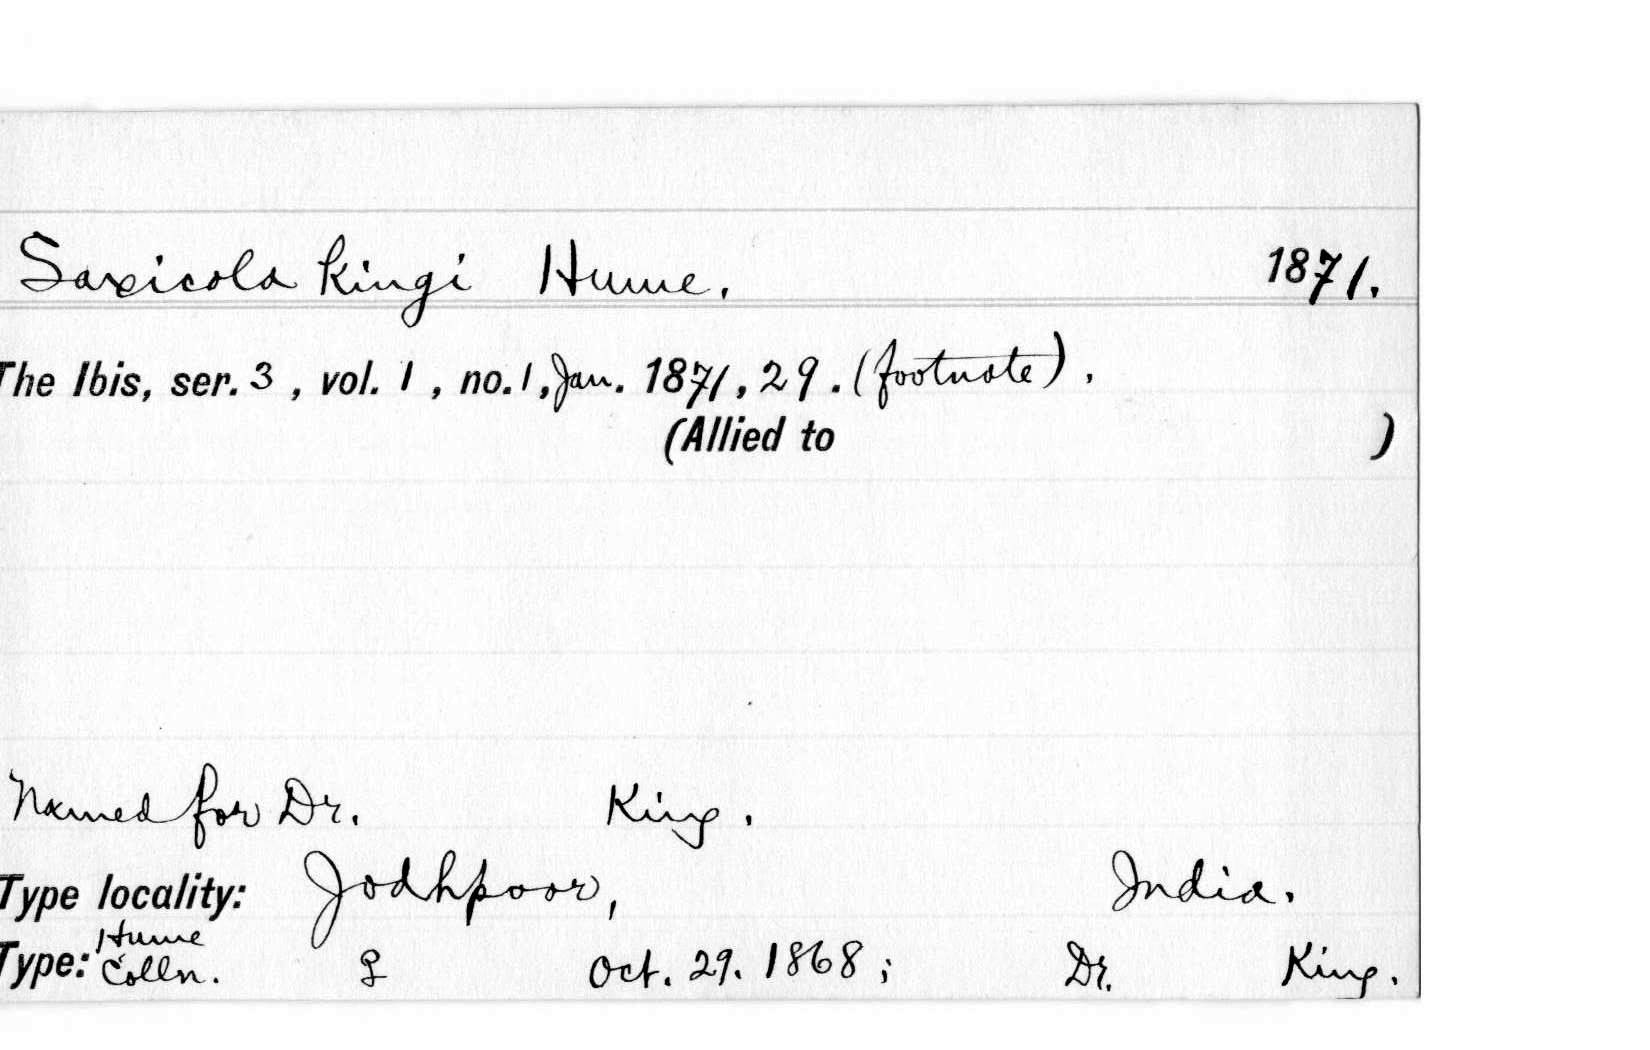 Saxicola kingi Hume. 1871.
The Ibis, ser. 3 , vol. 1 , no. 1, Jan. 1871, 29 . (footnote) .
(Allied to )
Named for Dr. King .
Type locality: Jodhpoor, India.
Type: Hume Colln. ♀ Oct. 29. 1868 ; Dr. King .